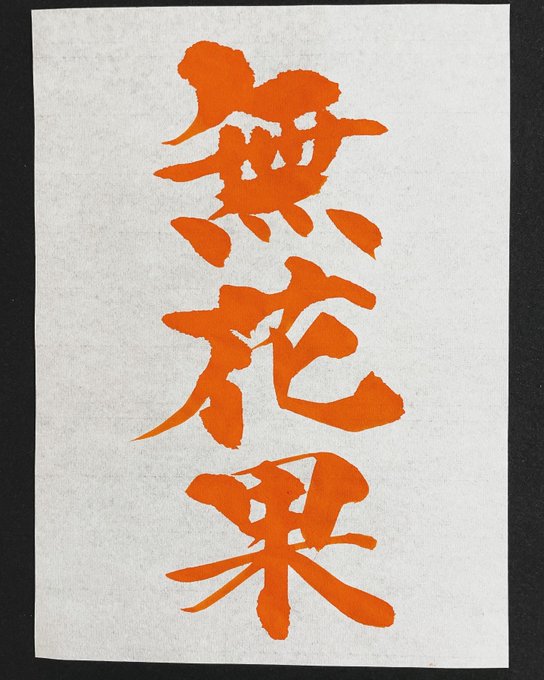 無花果